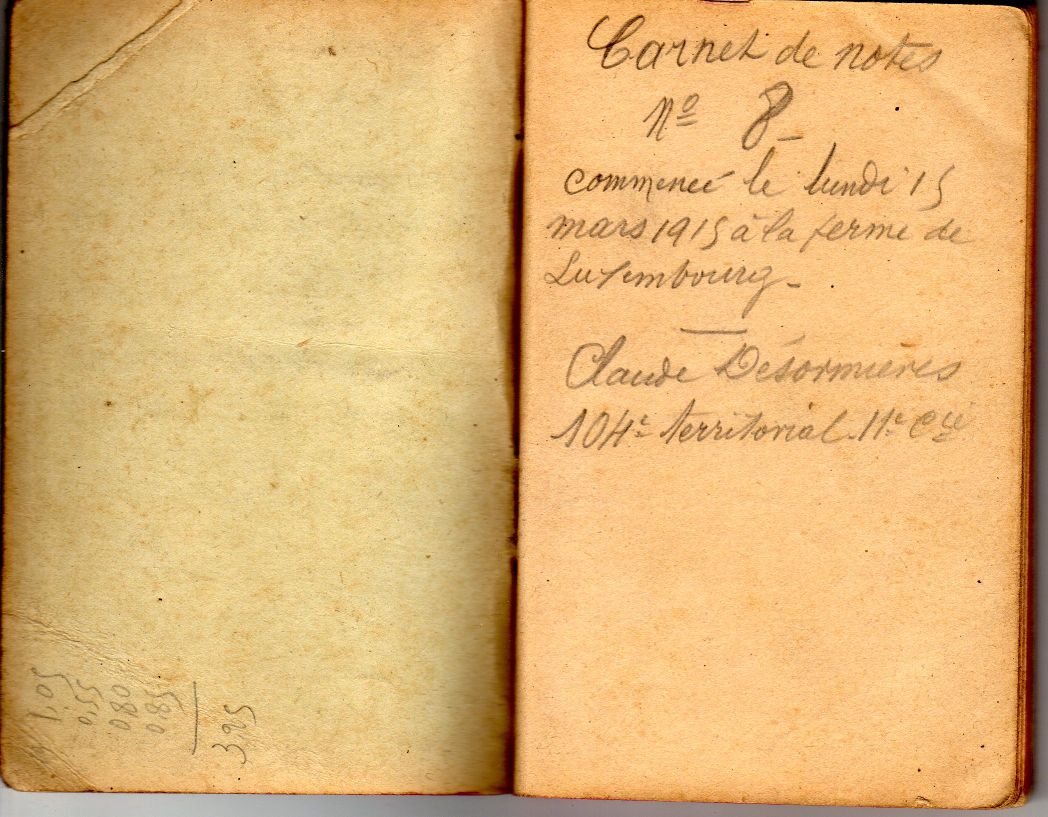 Carnet de notes
Nº 8_
commencé le lundi 15
mars 1915 à la ferme de
Luxembourg_
Claude Désormières
104e territorial. 11e Cie
1,05
0,55
0,80
0,85
3,25